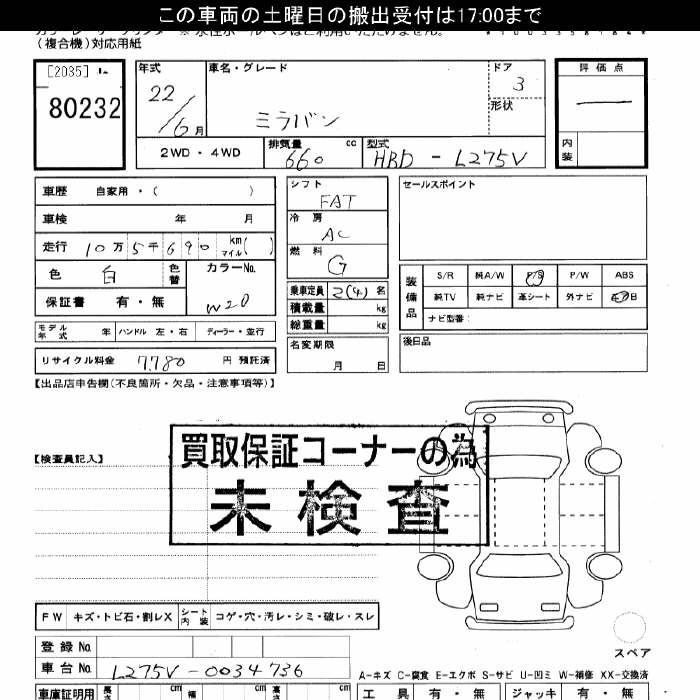 この車両の土曜日の搬出受付は17:00まで
(複合機)対応用紙
[2035]
80232
年式 22/6月
車名・グレード ミラバン
ドア 3
形状
2WD・4WD
排気量 660 cc
型式 HBD-L275V
評価点 —
内装
車歴 自家用・( )
車検 年 月
走行 10万5千690 km マイル( )
色 白 色替 カラーNo. W20
保証書 有・無
モデル年式 年 ハンドル 左・右 ディーラー・並行
リサイクル料金 7780 円 預託済
シフト FAT
冷房 AC
燃料 G
乗車定員 2(4)名
積載量 kg
総重量 kg
名変期限 月 日
セールスポイント
装備品
S/R 純A/W P/S P/W ABS
純TV 純ナビ 革シート 外ナビ
ナビ型番:
後日品
【出品店申告欄(不良箇所・欠品・注意事項等)】
【検査員記入】
買取保証コーナーの為
未検査
FW キズ・トビ石・割レX シート内装 コゲ・穴・汚レ・シミ・破レ・スレ
登録No.
車台No. L275V-0034736
スペア
A-キズ C-腐食 E-エクボ S-サビ U-凹ミ W-補修 XX-交換済
車庫証明用 長さ cm 幅 cm 高さ cm
工具 有・無 ジャッキ 有・無